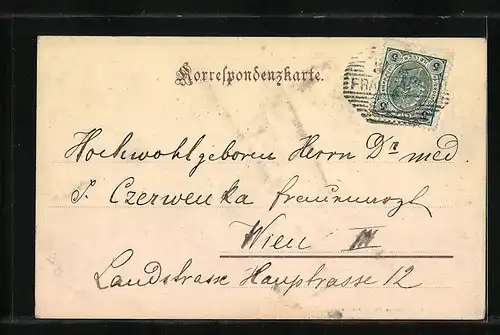 Korrespondenzkarte.
5 5
FRA
5 5
Hochwohlgeboren Herrn Dr med.
J. Czerwenka Frauenarzt
Wien III
Landstrasse Hauptrasse 12